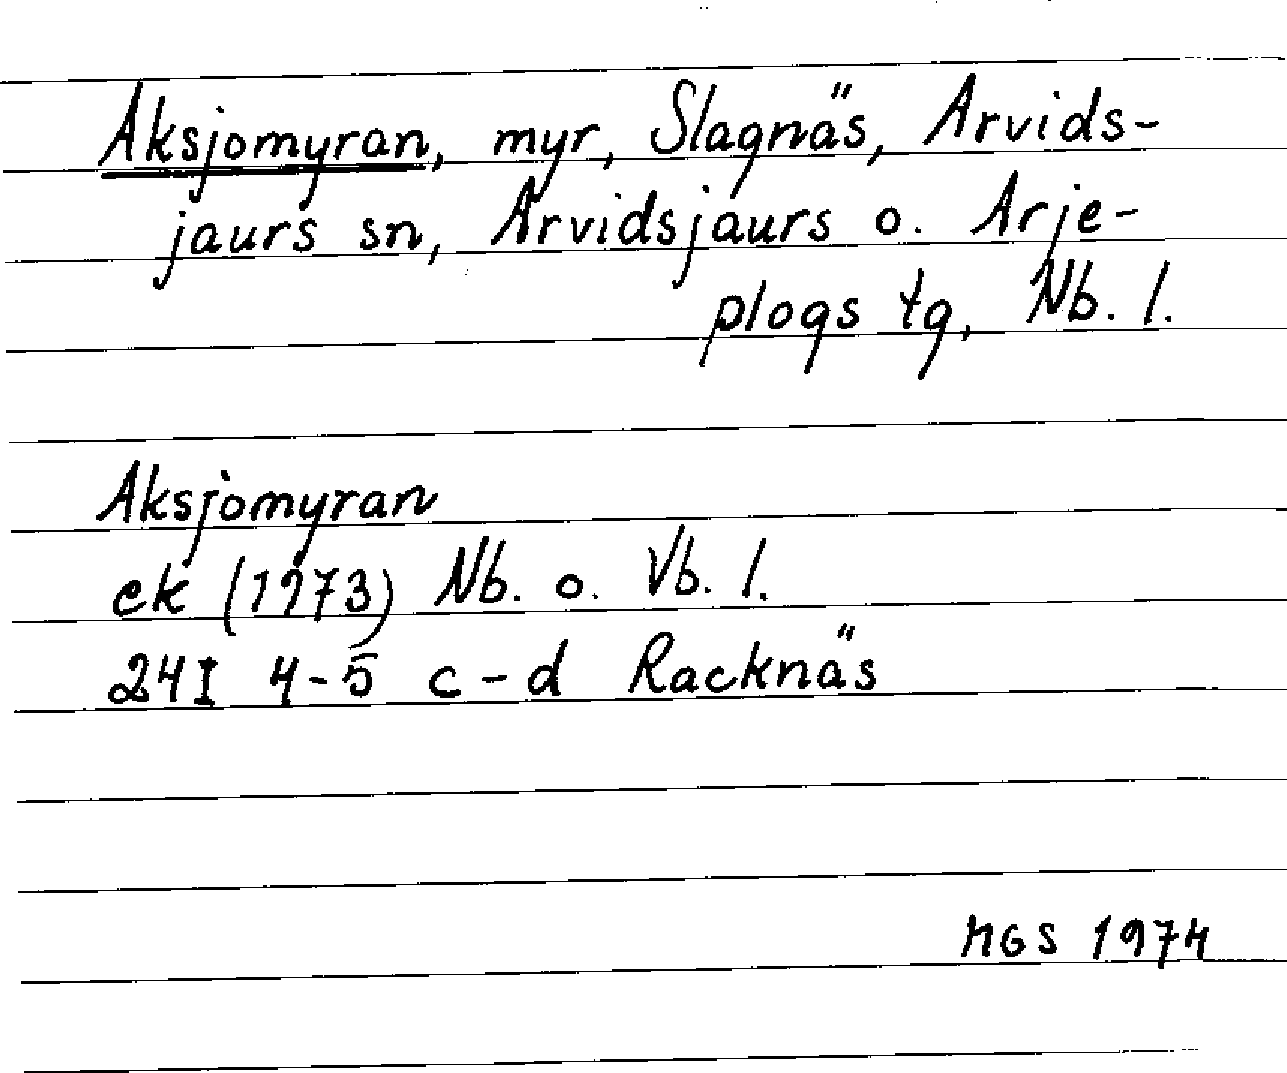 Aksjomyran, myr, Slagnäs, Arvids-
jaurs sn, Arvidsjaurs o. Arje-
plogs tg, Nb. l.
Aksjomyran
ek (1973) Nb. o. Vb. l.
24I 4-5 c-d Racknäs
MGS 1974